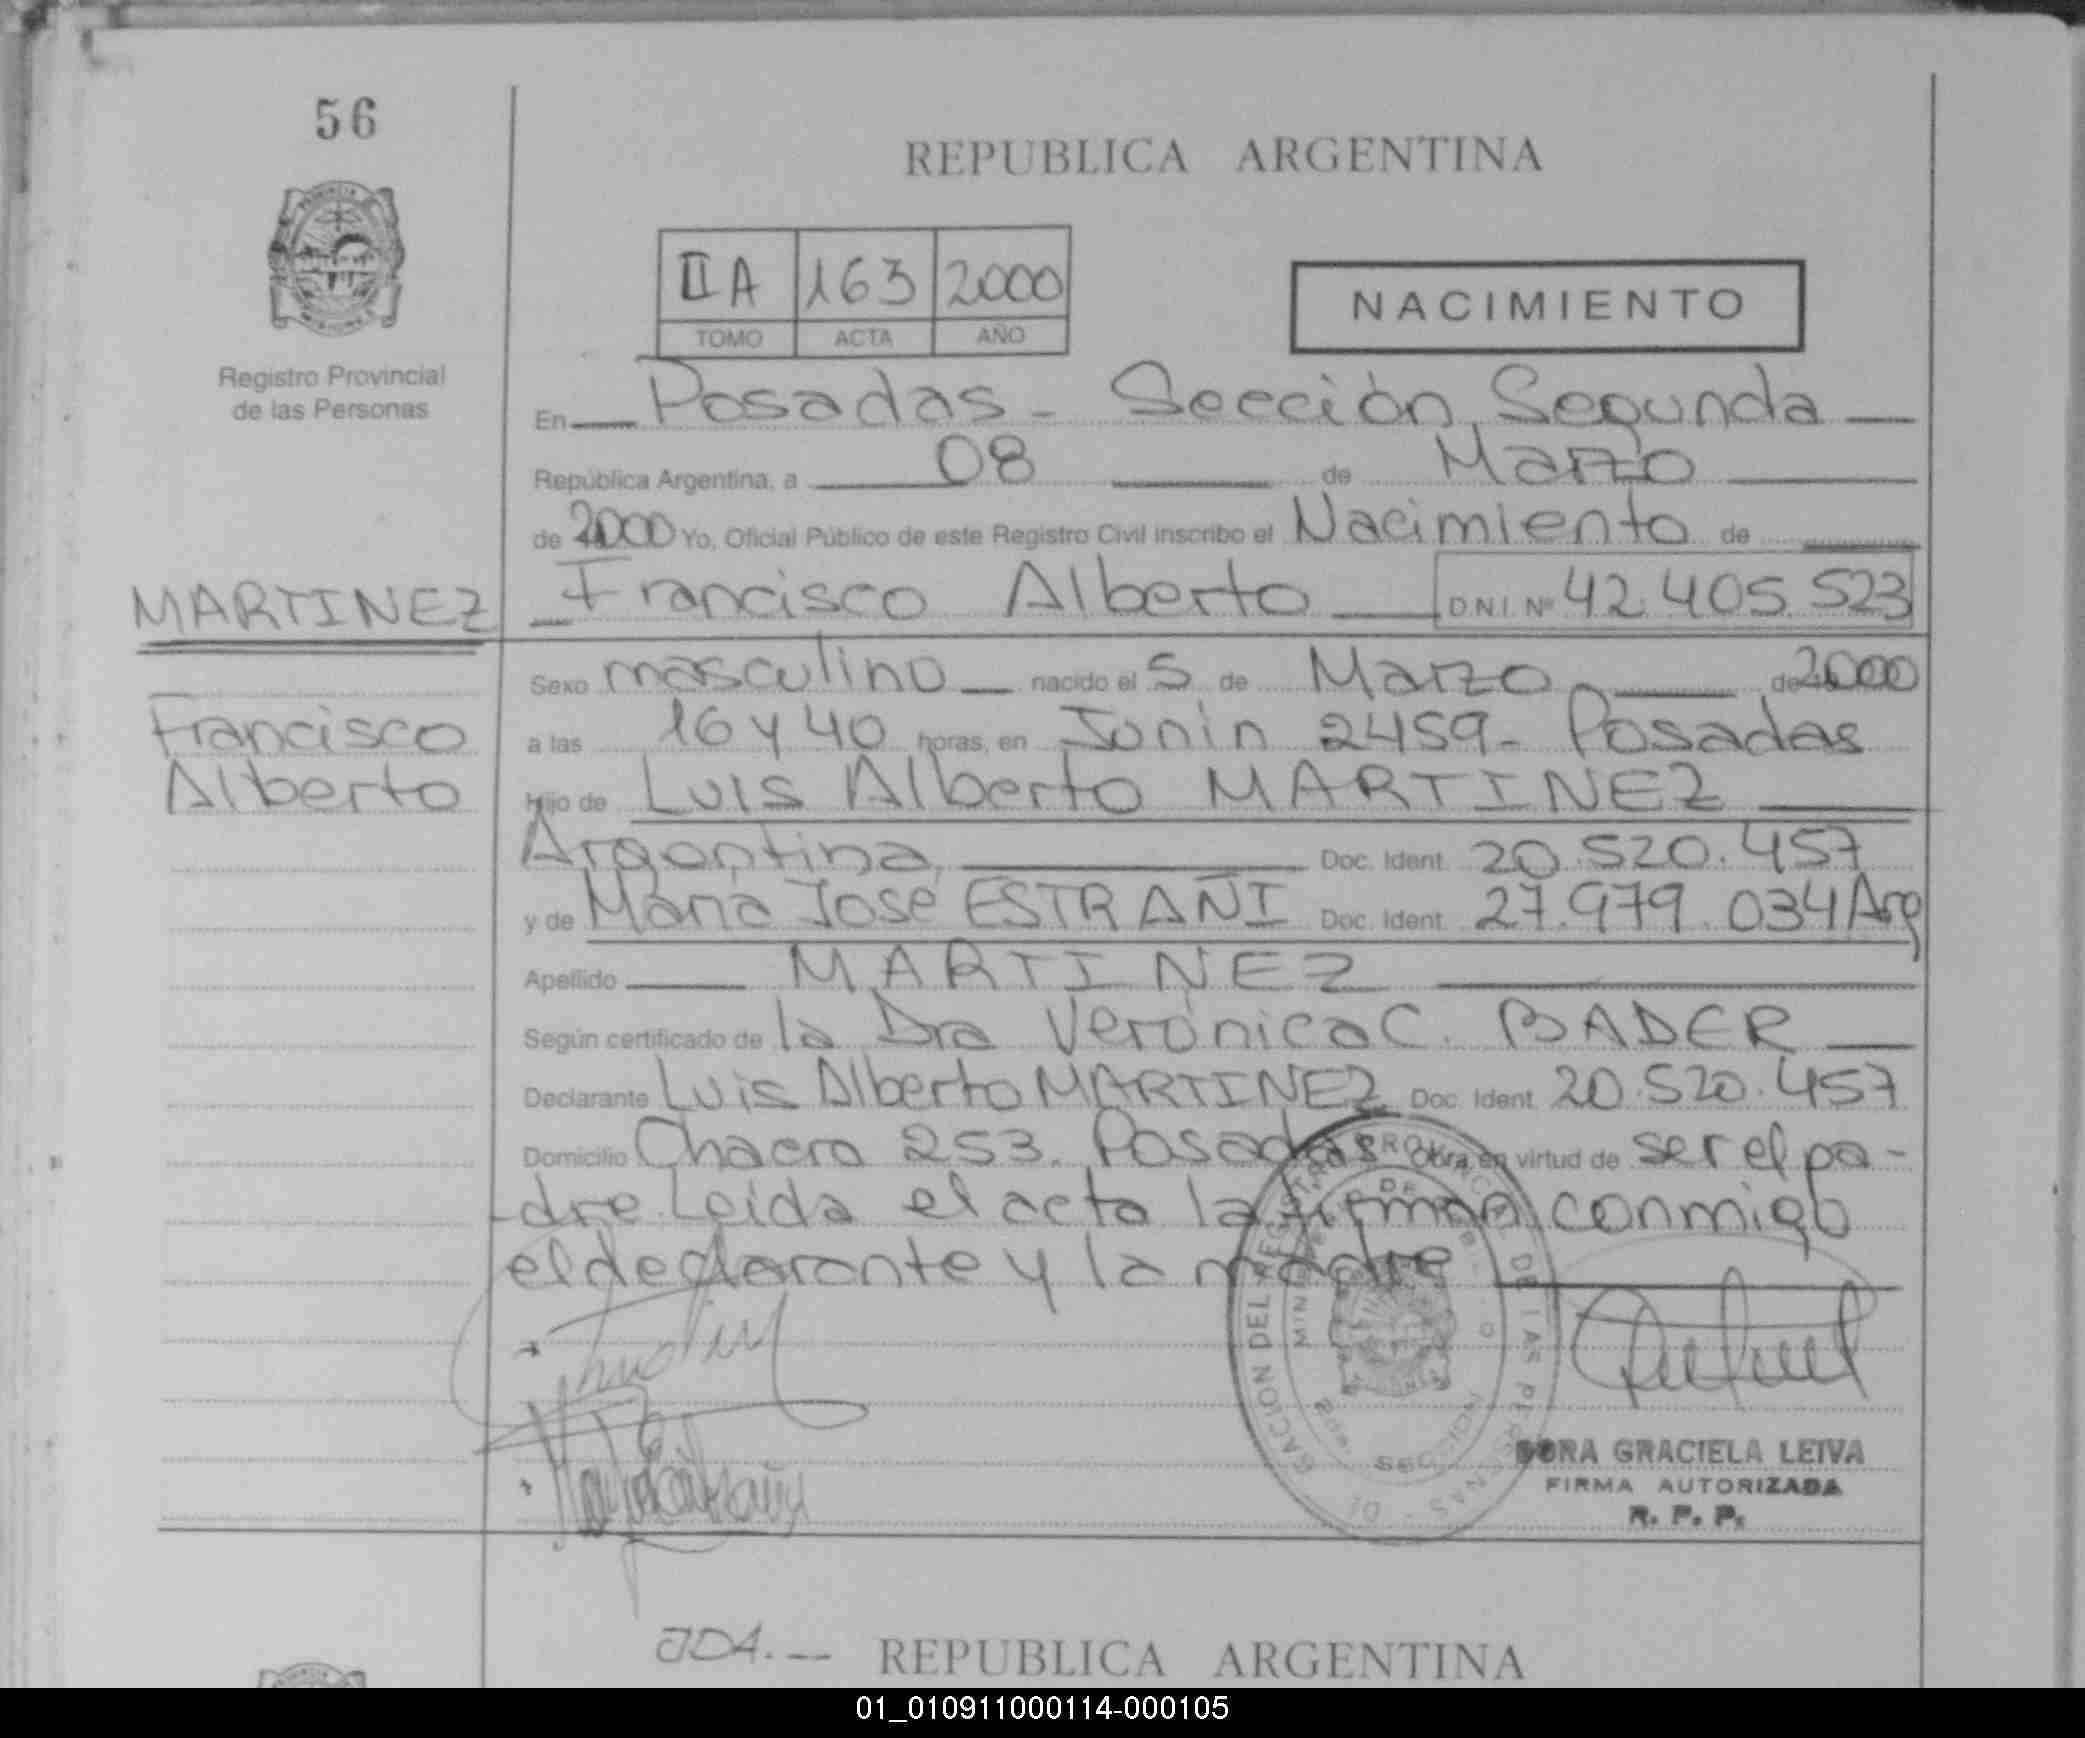 56
REPUBLICA ARGENTINA
II A 163 2000
TOMO ACTA AÑO
NACIMIENTO
Registro Provincial
de las Personas
En Posadas - Sección Segunda
República Argentina, a 08 de Marzo
de 2000 Yo, Oficial Público de este Registro Civil inscribo el Nacimiento de
MARTINEZ
Francisco Alberto D.N.I. Nº 42.405.523
Sexo masculino nacido el 5 de Marzo de 2000
Francisco
Alberto
a las 16 y 40 horas, en Junín 2459 - Posadas
Hijo de Luis Alberto MARTINEZ
Argentina Doc. Ident. 20.520.457
y de María José ESTRAÑI Doc. Ident. 27.979.034 Arg
Apellido MARTINEZ
Según certificado de la Dra Verónica C. BADER
Declarante Luis Alberto MARTINEZ Doc. Ident. 20.520.457
Domicilio Chacra 253. Posadas Obra en virtud de ser el pa-
-dre. Leida el acta la firman conmigo
el declarante y la madre
DORA GRACIELA LEIVA
FIRMA AUTORIZADA
R. P. P.
REPUBLICA ARGENTINA
01_010911000114-000105